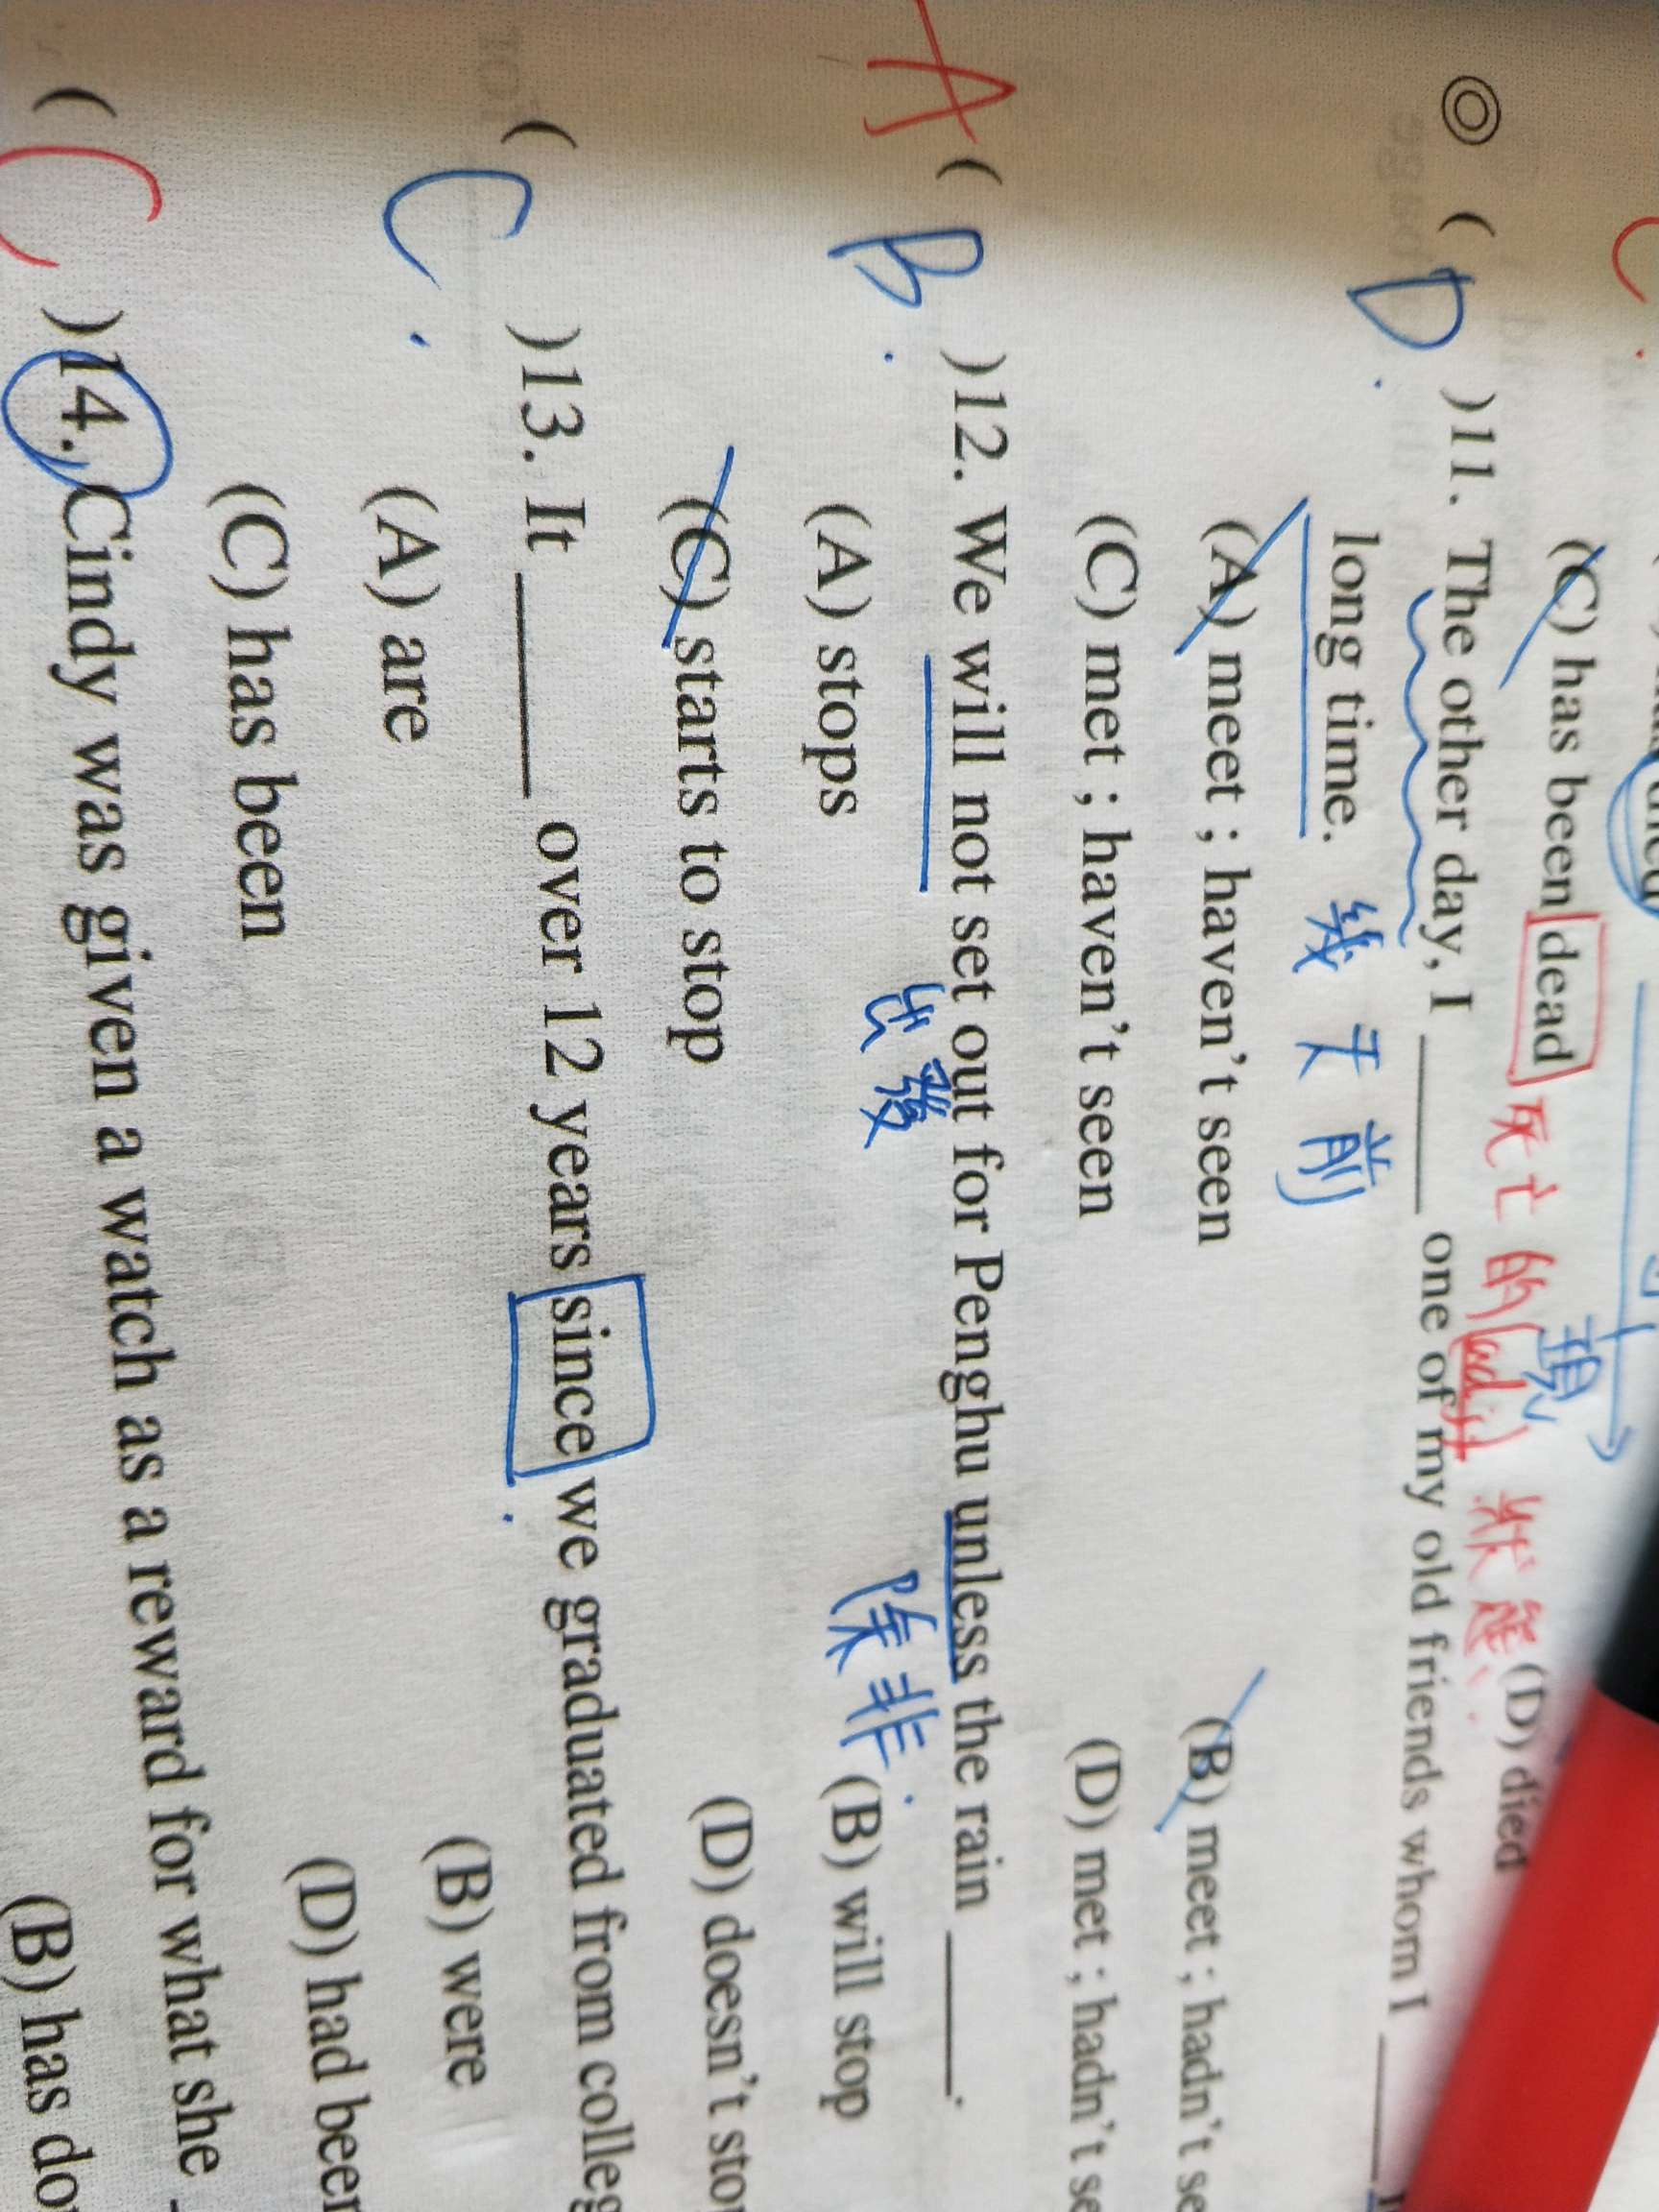 (C) has been dead 死亡的(adj) 狀態 (D) died
◎ ( D )11. The other day, I ______ one of my old friends whom I ______
long time. 幾天前
(A) meet ; haven't seen (B) meet ; hadn't se
(C) met ; haven't seen (D) met ; hadn't se
A ( B )12. We will not set out for Penghu unless the rain ______.
出發 除非
(A) stops (B) will stop
(C) starts to stop (D) doesn't stop
( C )13. It ______ over 12 years since we graduated from colleg
(A) are (B) were
(C) has been (D) had been
( C )14. Cindy was given a watch as a reward for what she
(B) has do